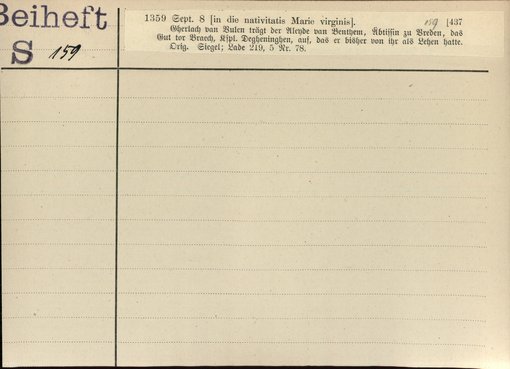 Beiheft
S 159
1359 Sept. 8 [in die nativitatis Marie virginis]. 159 [437
Gherlach van Bulen trägt der Aleyde van Benthem, Äbtissin zu Vreden, das
Gut tor Braeck, Kspl. Degheninghen, auf, das er bisher von ihr als Lehen hatte.
Orig. Siegel; Lade 219, 5 Nr. 78.